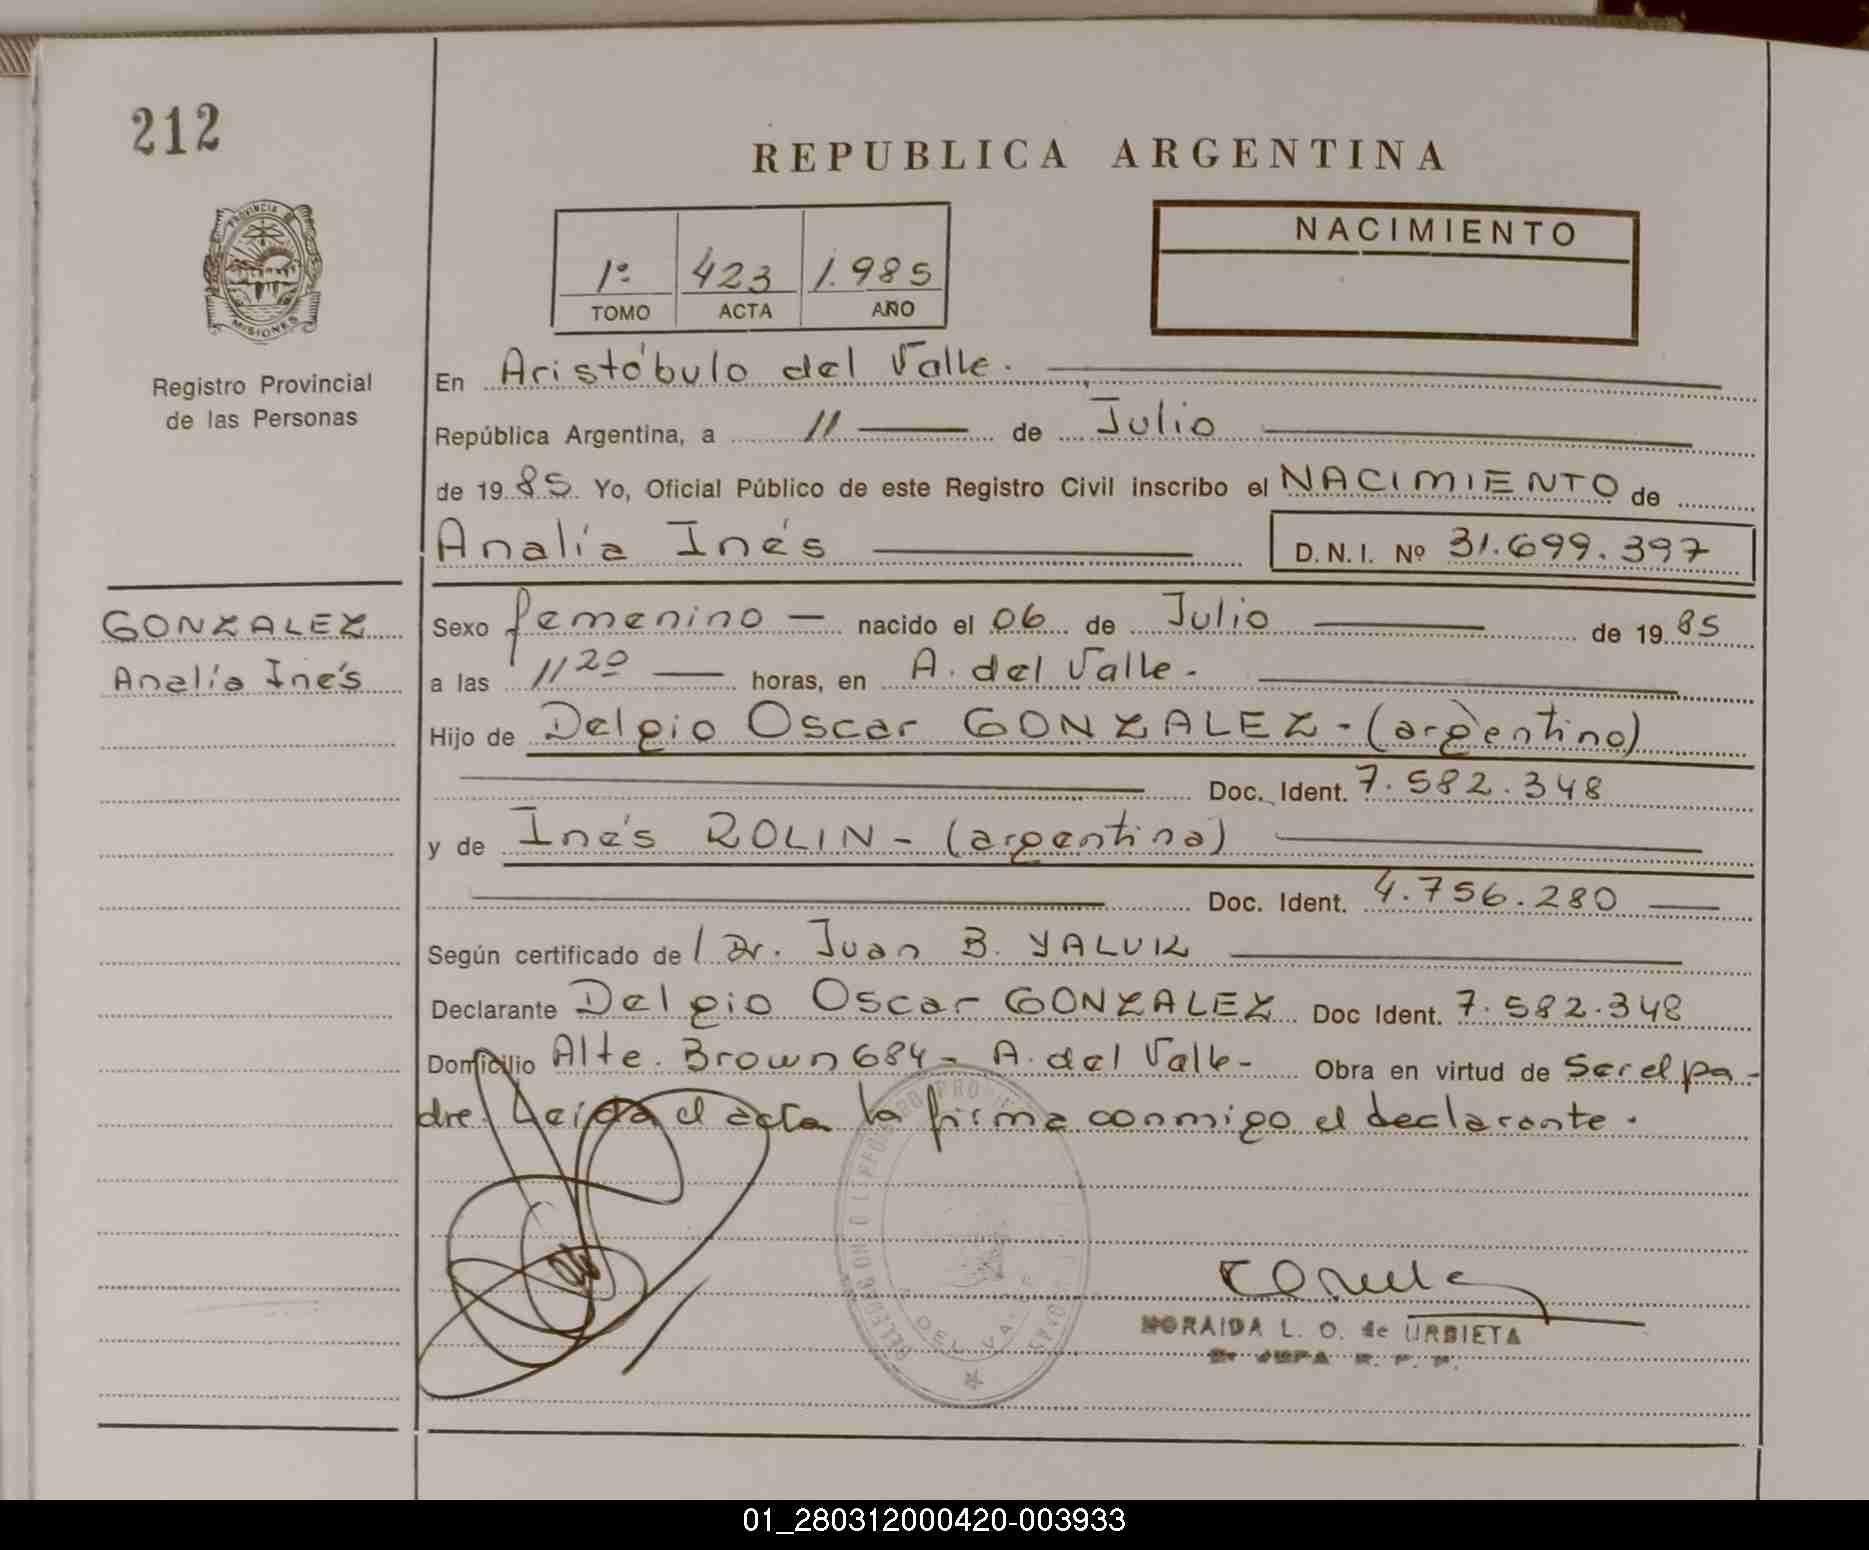 212
REPUBLICA ARGENTINA
PROVINCIA DE
MISIONES
1º 423 1.985
TOMO ACTA AÑO
NACIMIENTO
Registro Provincial
de las Personas
En Aristóbulo del Valle.
República Argentina, a 11 de Julio
de 19 85 Yo, Oficial Público de este Registro Civil inscribo el NACIMIENTO de
Analía Inés
D.N.I. Nº 31.699.397
GONZALEZ
Analía Inés
Sexo femenino — nacido el 06 de Julio de 19 85
a las 11 20 horas, en A. del Valle.
Hijo de Delgio Oscar GONZALEZ - (argentino)
Doc. Ident. 7.582.348
y de Inés ROLIN - (argentina)
Doc. Ident. 4.756.280
Según certificado de / Dr. Juan B. YALUK
Declarante Delgio Oscar GONZALEZ Doc Ident. 7.582.348
Domicilio Alte. Brown 684 - A. del Valle - Obra en virtud de ser el pa-
dre. Leída el acta la firma conmigo el declarante.
DEL VALLE
NORAIDA L. O. de URBIETA
01_280312000420-003933